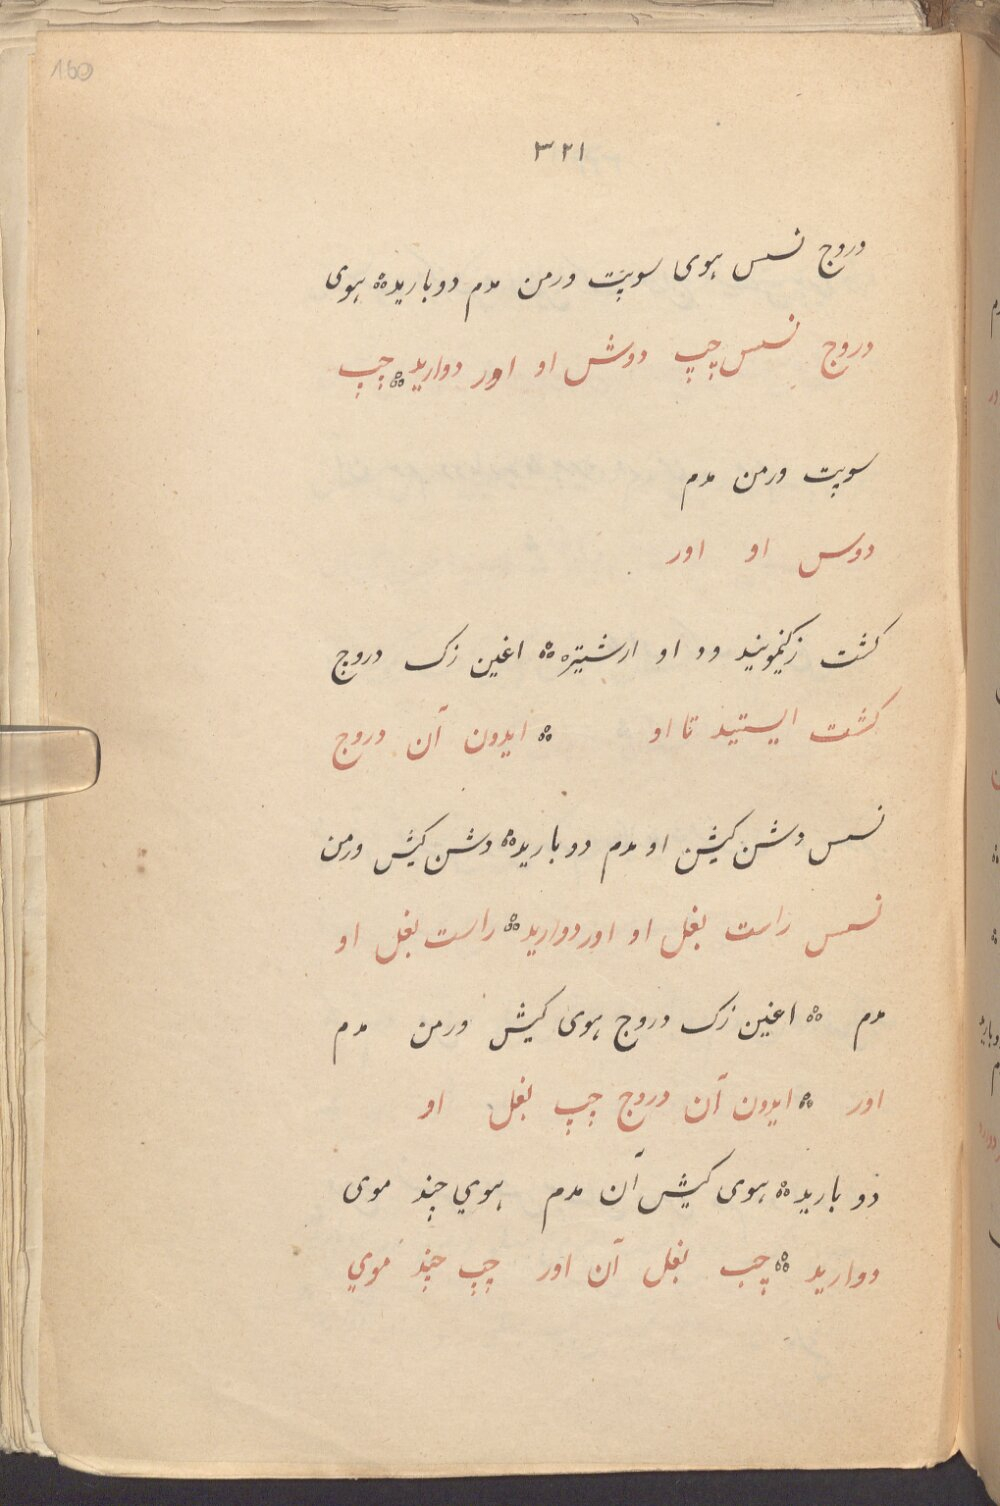 160
۳۲۱
دروج نسس هوی سوپت ورمن مدم دوبارید ه هوی
دروج نسس چپ دوش او اور دوارید ه چپ
سوپت ورمن مدم
دوس او اور
کشت زکیمونید ود او ارشیتره ه اغین زک دروج
کشت ایستید تا او ه ایدون آن دروج
نسس دشن کیشن او مدم دوبارید ه دشن کیش ورمن
نسس راست بغل او اور دوارید ه راست بغل او
مدم ه اغین زک دروج هوی کیش ورمن مدم
اور ه ایدون آن دروج چپ بغل او
دوبارید ه هوی کیش آن مدم هوي چند موی
دوارید ه چپ بغل آن اور چپ چند موي